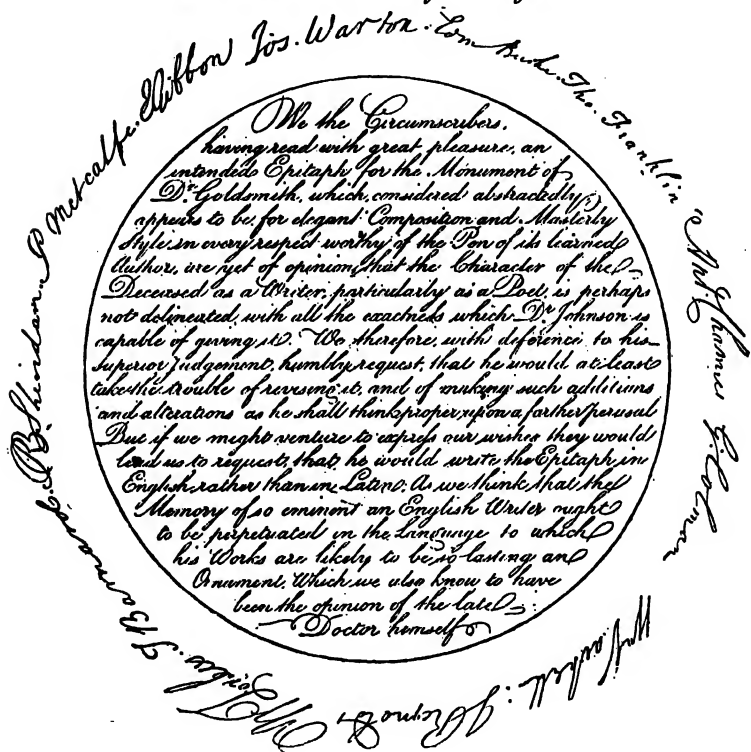 We the Circumscribers,
having read with great pleasure, an
intended Epitaph for the Monument of
Dr. Goldsmith, which, considered abstractedly,
appears to be, for elegant Composition and Masterly
Style, in every respect worthy of the Pen of its learned
Author, are yet of opinion, that the Character of the
Deceased as a Writer, particularly as a Poet, is perhaps
not delineated with all the exactness which Dr Johnson is
capable of giving it. We therefore, with deference to his
superior judgement, humbly request, that he would at least
take the trouble of revising it, and of making such additions
and alterations as he shall think proper, upon a farther perusal
But if we might venture to express our wishes they would
lead us to request, that he would write the Epitaph in
English, rather than in Latin: As we think that the
Memory of so eminent an English Writer ought
to be perpetuated in the language to which
his Works are likely to be so lasting an
Ornament, Which we also know to have
been the opinion of the late
Doctor himself
Edm Burke. Tho. Franklin
Ant. Chamier
G. Colman
Wm Vachell.
J Reynolds,
W Forbes.
T Barnard
R. Sheridan.
P Metcalfe.
E Gibbon
Jos. Warton.